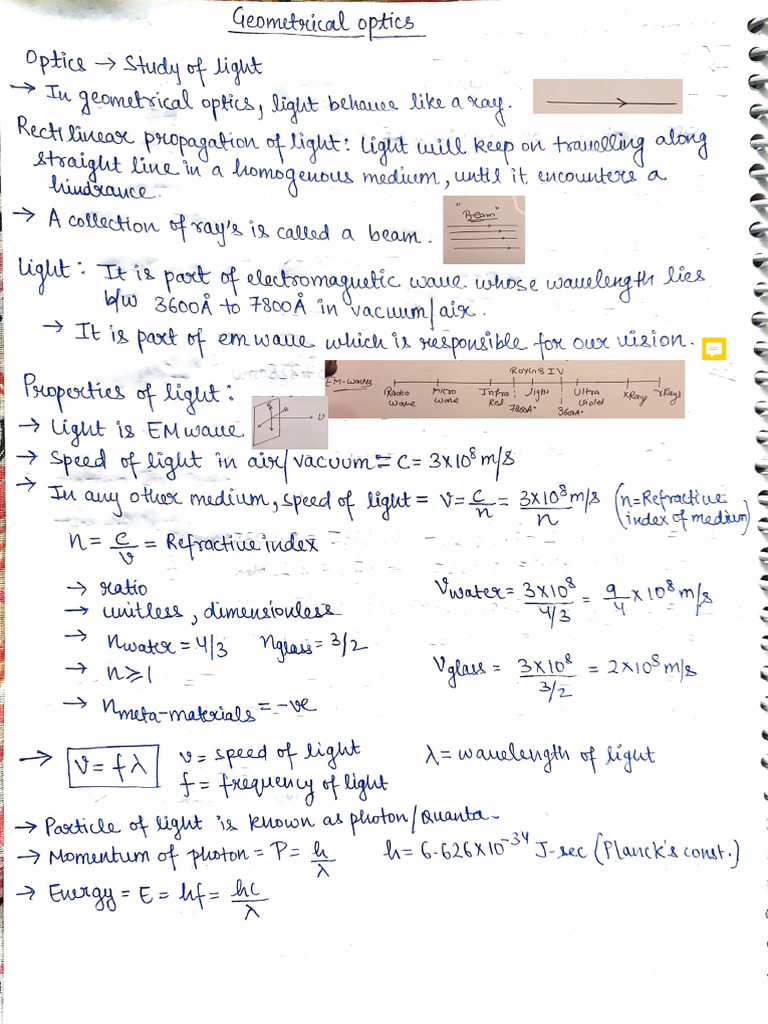 Geometrical optics
Optics → Study of light
→ In geometrical optics, light behaves like a ray.
Rectilinear propagation of light: Light will keep on travelling along
straight line in a homogenous medium, until it encounters a
hindrance.
→ A collection of ray's is called a beam.
"Beam"
Light: It is part of electromagnetic wave whose wavelength lies
b/w 3600Å to 7800Å in vacuum/air.
→ It is part of em wave which is responsible for our vision.
ROYGBIV
EM-waves
Radio wave
Micro wave
Infra Red
light
Ultra Violet
X Rays
γ Rays
7800A°
3600A°
Properties of light:
→ Light is EM wave
→ Speed of light in air/vacuum = C = 3×10⁸ m/s
→ In any other medium, speed of light = v = c/n = 3×10⁸ m/s / n (n = Refractive index of medium)
n = c/v = Refractive index
→ ratio
→ unitless, dimensionless
→ n water = 4/3 n glass = 3/2
→ n ≥ 1
→ n meta-materials = -ve
V water = 3×10⁸ / 4/3 = 9/4 × 10⁸ m/s
V glass = 3×10⁸ / 3/2 = 2×10⁸ m/s
→ v = fλ v = speed of light λ = wavelength of light
f = frequency of light
→ Particle of light is known as photon/Quanta
→ Momentum of photon = P = h/λ h = 6.626×10⁻³⁴ J-sec (Planck's const.)
→ Energy = E = hf = hc/λ